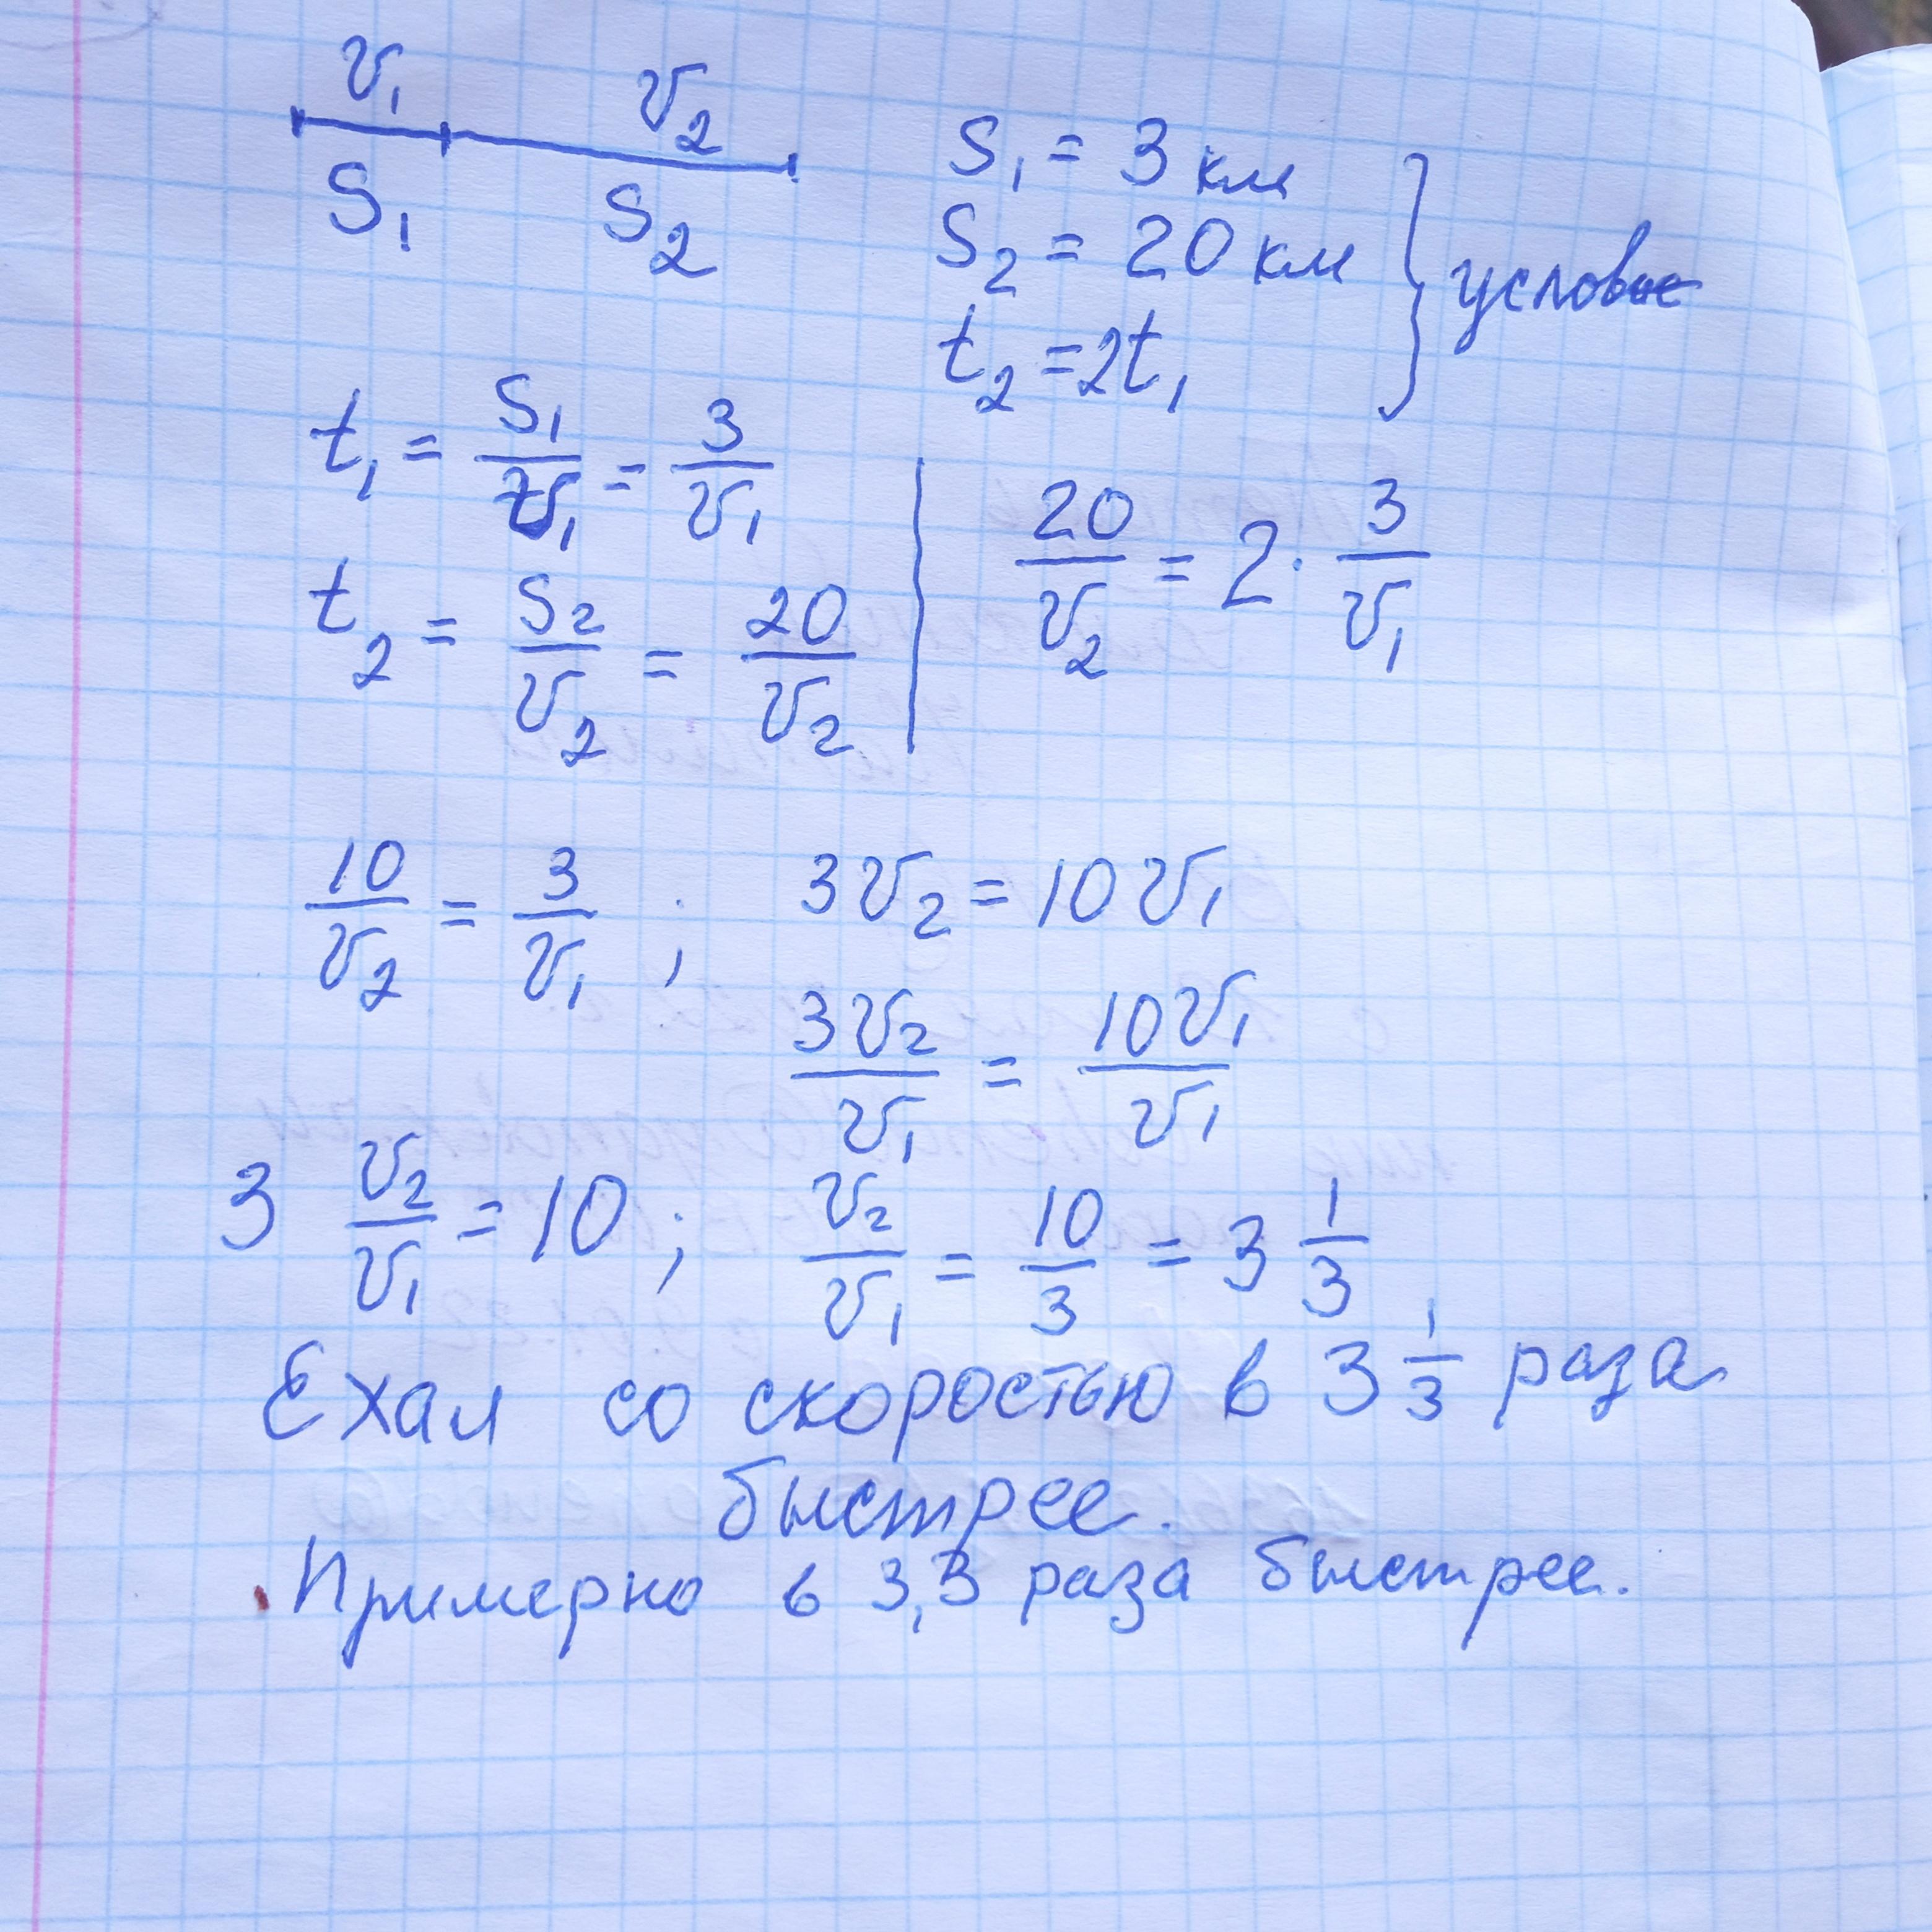 v₁ v₂
S₁ S₂
S₁ = 3 км
S₂ = 20 км
t₂ = 2t₁
} условие
t₁ = S₁/v₁ = 3/v₁
t₂ = S₂/v₂ = 20/v₂
20/v₂ = 2 · 3/v₁
10/v₂ = 3/v₁ ; 3v₂ = 10v₁
3v₂/v₁ = 10v₁/v₁
3 v₂/v₁ = 10 ; v₂/v₁ = 10/3 = 3 1/3
Ехал со скоростью в 3 1/3 раза
быстрее.
Примерно в 3,3 раза быстрее.